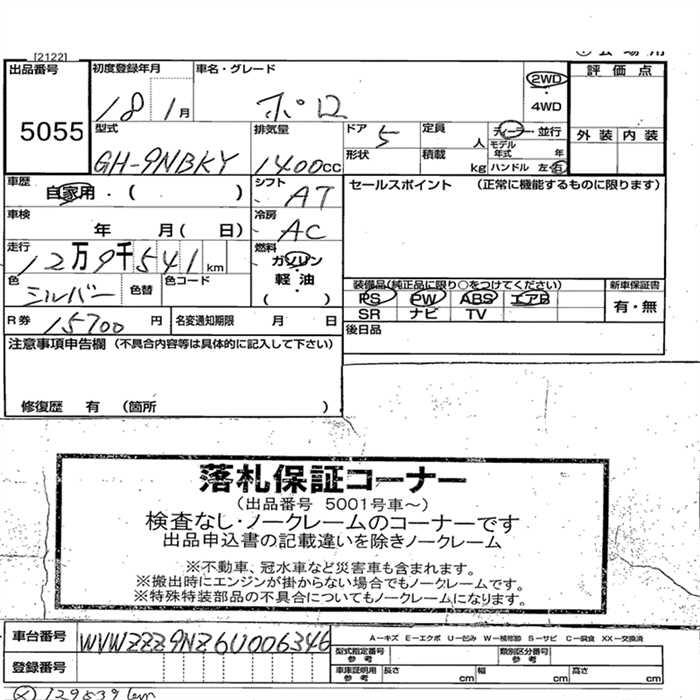 [2122]
出品番号
5055
初度登録年月
18 1月
車名・グレード
ポロ
2WD
・
4WD
評価点
外装 内装
型式
GH-9NBKY
排気量
1400cc
ドア 5
形状
定員 人
積載 kg
ディーラー・並行
モデル年式 年
ハンドル 左・右
車歴
自家用・( )
シフト
AT
セールスポイント (正常に機能するものに限ります)
車検
年 月( 日)
冷房
AC
走行
12万9千541km
燃料
ガソリン
軽・油
( )
色
シルバー
色替
色コード
装備品(純正品に限り○をつけてください)
PS PW ABS エアB
SR ナビ TV
新車保証書
有・無
R券 15700円
名変通知期限 月 日
後日品
注意事項申告欄 (不具合内容等は具体的に記入して下さい)
修復歴 有 (箇所 )
落札保証コーナー
(出品番号 5001号車〜)
検査なし・ノークレームのコーナーです
出品申込書の記載違いを除きノークレーム
※不動車、冠水車など災害車も含まれます。
※搬出時にエンジンが掛からない場合でもノークレームです。
※特殊特装部品の不具合についてもノークレームになります。
車台番号
WVWZZZ9NZ6U006346
登録番号
A―キズ E―エクボ U―凹み W―補修跡 S―サビ C―腐食 XX―交換済
型式指定番号
参考
類別区分番号
参考
車庫証明用
参考
長さ cm
幅 cm
高さ cm
129839km